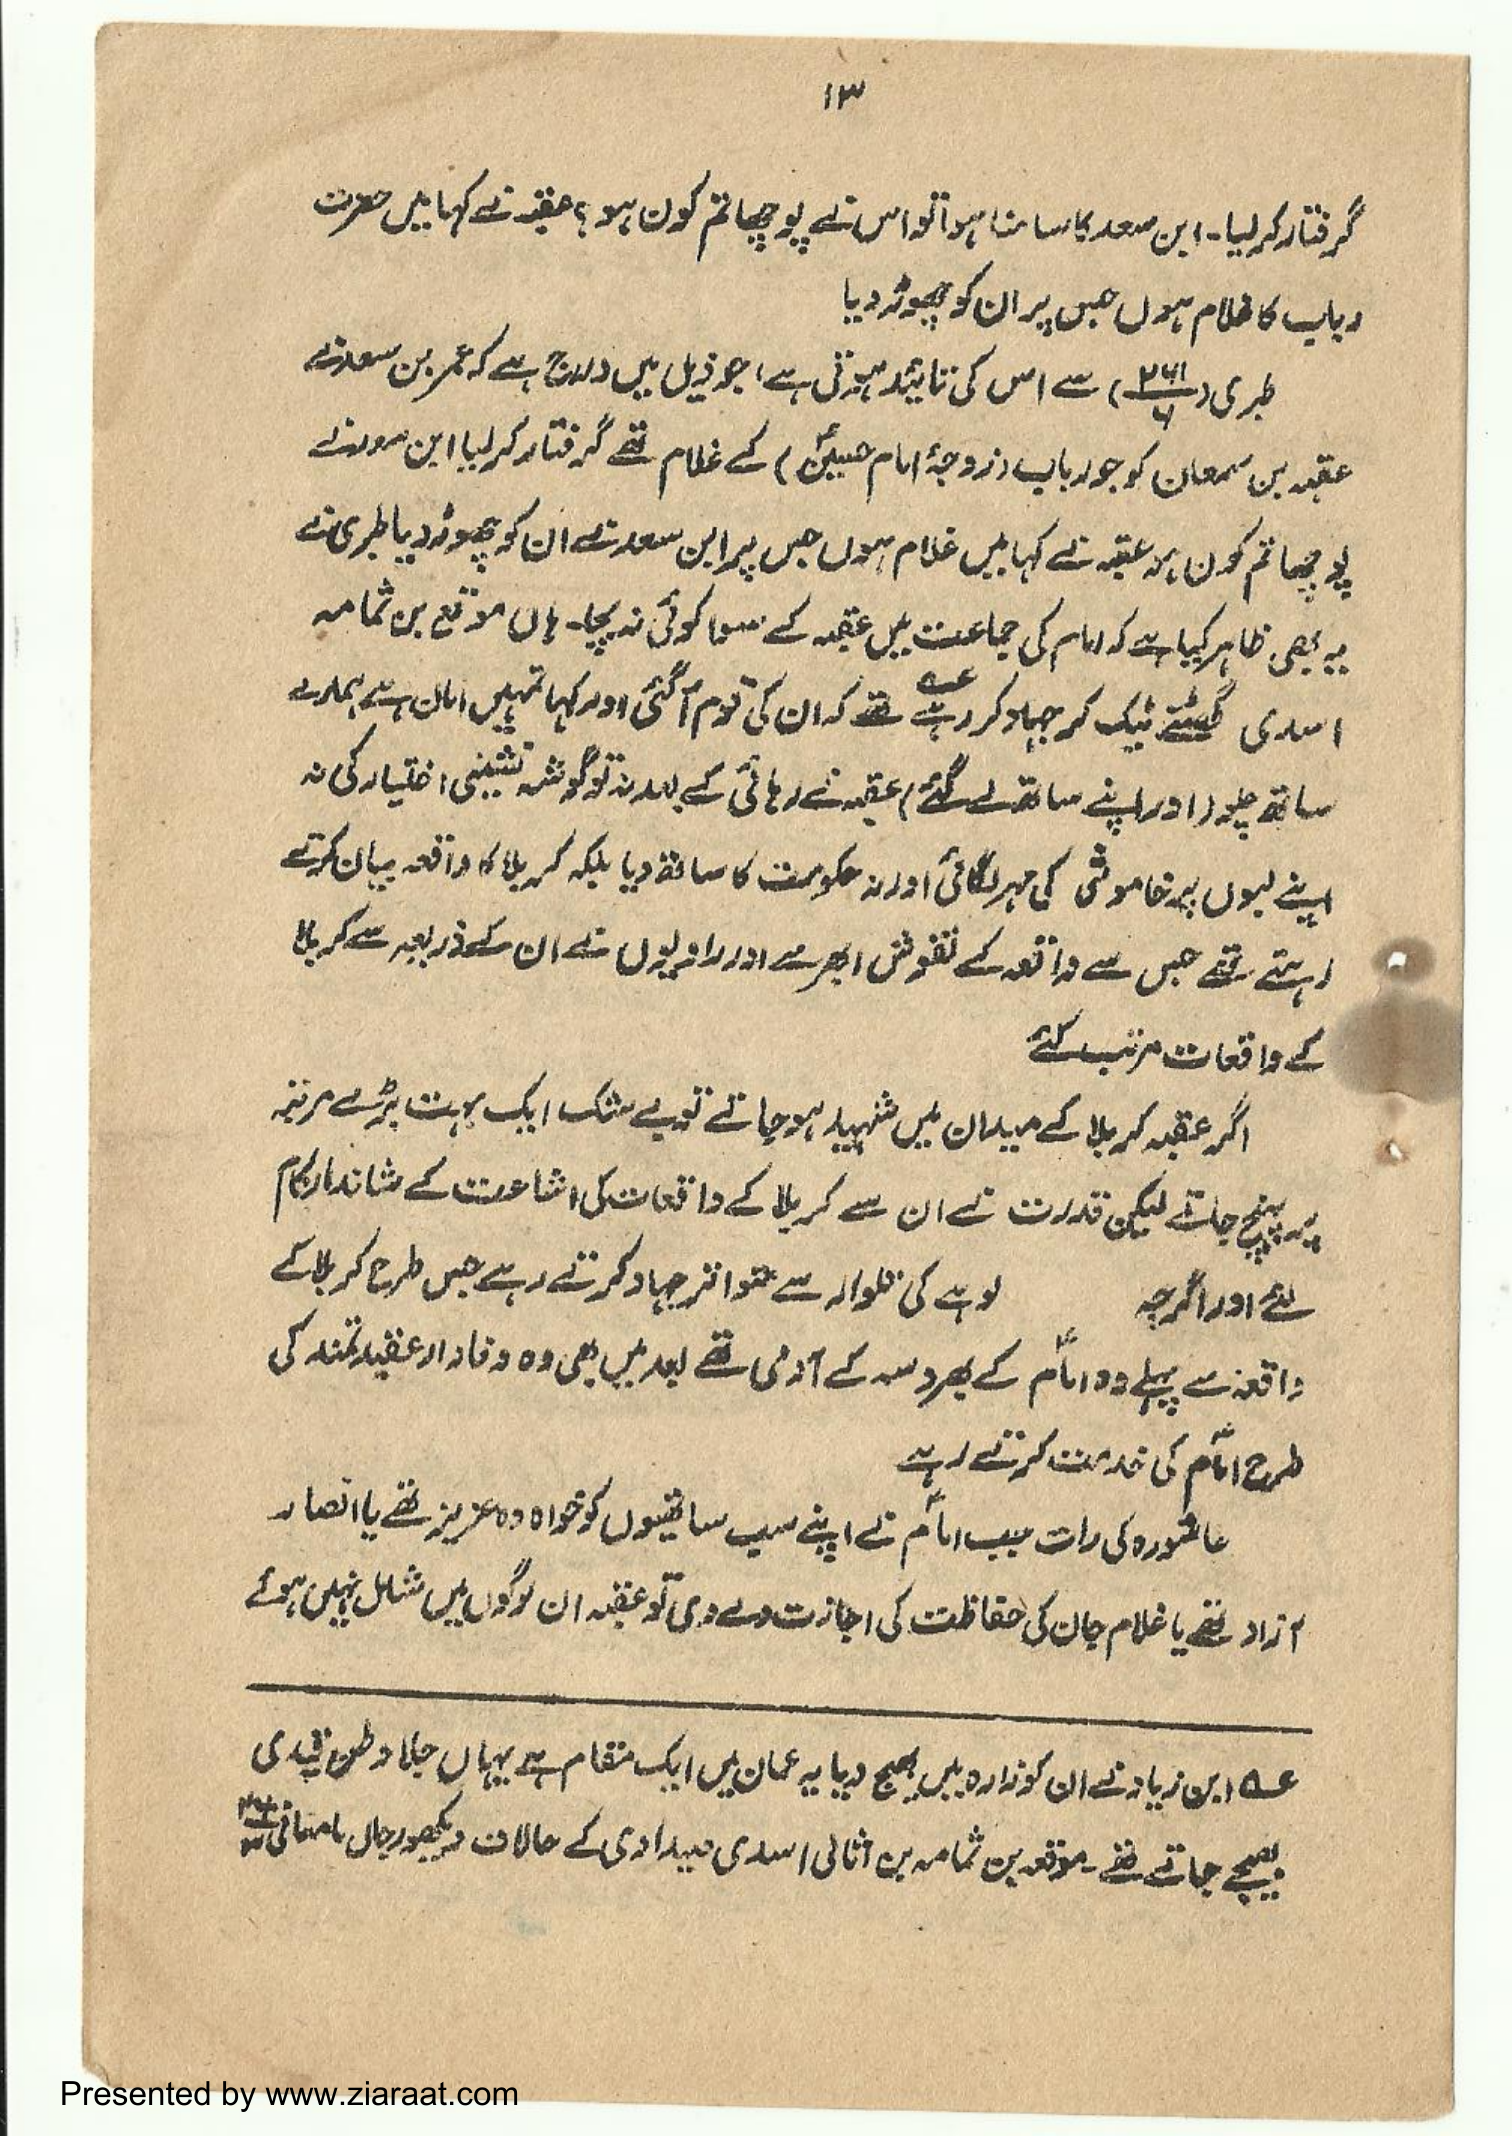 ۱۳
گرفتار کر لیا۔ ابن سعد کا سامنا ہوا تو اس نے پوچھا تم کون ہو؟ عقبہ نے کہا میں حضرت
رباب کا غلام ہوں جس پر ان کو چھوڑ دیا
طبری (۲۶۱/۶) سے اس کی تائید ہوتی ہے، جو ذیل میں درج ہے کہ عمر بن سعد نے
عقبہ بن سمعان کو جو رباب (زوجۂ امام حسینؑ) کے غلام تھے گرفتار کر لیا ابن سعد نے
پوچھا تم کون ہو عقبہ نے کہا میں غلام ہوں جس پر ابن سعد نے ان کو چھوڑ دیا طبری نے
یہ بھی ظاہر کیا ہے کہ امام کی جماعت میں عقبہ کے سوا کوئی نہ بچا۔ ہاں موقع بن ثمامہ
اسدی گھٹنے ٹیک کر جہاد کر رہے تھے عہ کہ ان کی قوم آگئی اور کہا تمہیں امان ہے ہمارے
ساتھ چلو (اور اپنے ساتھ لے گئے) عقبہ نے رہائی کے بعد نہ تو گوشہ نشینی اختیار کی نہ
اپنے لبوں پر خاموشی کی مہر لگائی اور نہ حکومت کا ساتھ دیا بلکہ کربلا کا واقعہ بیان کرتے
رہتے تھے جس سے واقعہ کے نقوش ابھرے اور راویوں نے ان کے ذریعہ سے کربلا
کے واقعات مرتب کئے
اگر عقبہ کربلا کے میدان میں شہید ہو جاتے تو بے شک ایک بہت بڑے مرتبہ
پر پہنچ جاتے لیکن قدرت نے ان سے کربلا کے واقعات کی اشاعت کے شاندار کام
لئے اور اگرچہ لوہے کی تلوار سے متواتر جہاد کرتے رہے جس طرح کربلا کے
واقعہ سے پہلے وہ امامؑ کے بھروسہ کے آدمی تھے بعد میں بھی وہ وفادار عقیدتمند کی
طرح امامؑ کی خدمت کرتے رہے
عاشورہ کی رات جب امامؑ نے اپنے سب ساتھیوں کو خواہ وہ عزیز تھے یا انصار
آزاد تھے یا غلام جان کی حفاظت کی اجازت دے دی تو عقبہ ان لوگوں میں شامل نہیں ہوئے
عہ ابن زیاد نے ان کو زارہ میں بھیج دیا یہ عمان میں ایک مقام ہے یہاں جلا وطن قیدی
بھیجے جاتے تھے۔ موقعہ بن ثمامہ بن اثالی اسدی صیداوی کے حالات دیکھو رجال مامقانی
Presented by www.ziaraat.com